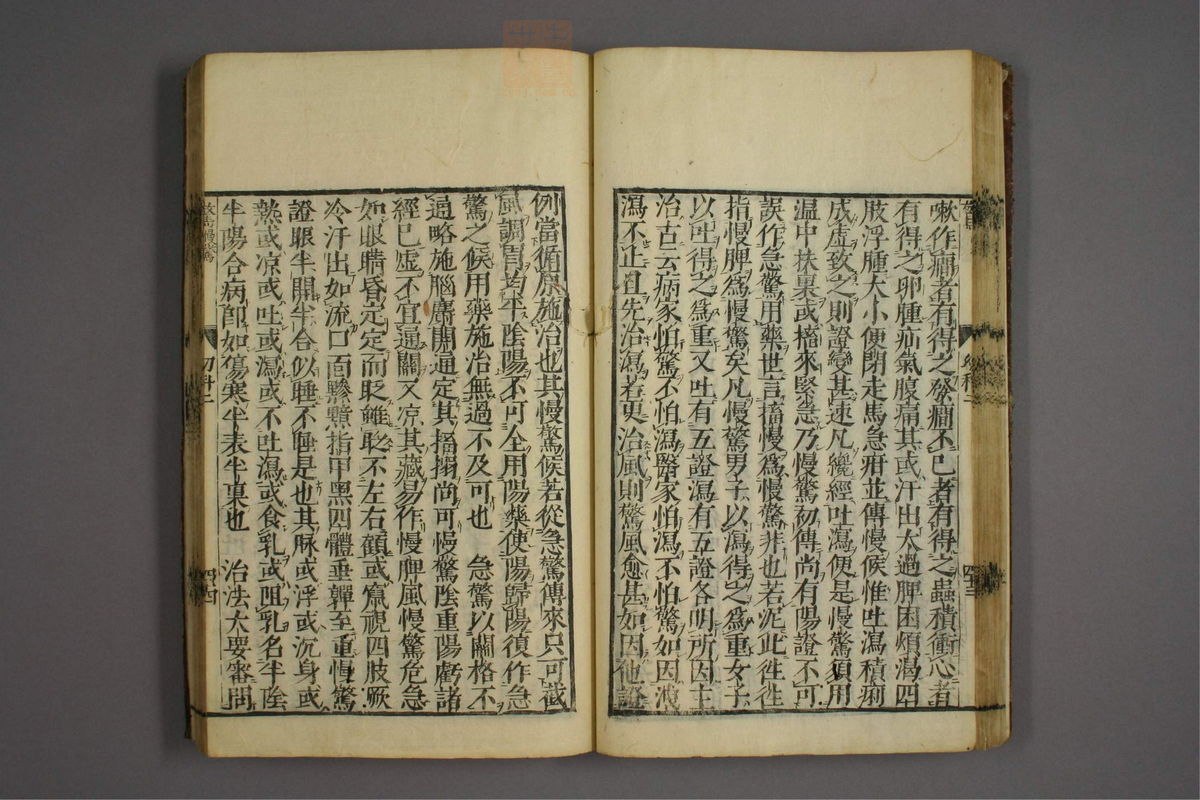 嗽作癎者有得之發癎不已者有得之蟲積衝心者
有得之卵腫疝氣腹痛其或汗出太過脾困煩渴四
肢浮腫大小便閉走馬急疳並傳慢候惟吐瀉積痢
成虛致之則證變甚速凡纔經吐瀉便是慢驚須用
温中扶裏或搐來緊急乃慢驚初傳尚有陽證不可
誤作急驚用藥世言搐慢爲慢驚非也若泥此徃徃
指慢脾爲慢驚矣凡慢驚男子以瀉得之爲重女子
以吐得之爲重又吐有五證瀉有五證各明所因主
治古云病家怕驚不怕瀉醫家怕瀉不怕驚如因瀉
瀉不止且先治瀉若更治風則驚風愈甚如因他證
例當循原施治也其慢驚候若從急驚傳來只可截
風調胃均平陰陽不可全用陽藥使陽歸陽復作急
驚之候用藥施治無過不及可也　急驚以關格不
通略施腦麝開通定其搐搦尚可慢驚陰重陽虧諸
經已虛不宜通關又凉其藏易作慢脾風慢驚危急
如眼睛昏定定而眨雖眨不左右顧或竄視四肢厥
冷汗出如流口面黲黯指甲黑四體垂嚲至重慢驚
證眼半開半合似睡不睡是也其脉或浮或沉身或
熱或凉或吐或瀉或不吐瀉或食乳或阻乳名半陰
半陽合病卽如傷寒半表半裏也　治法大要審問
幼科二
四四